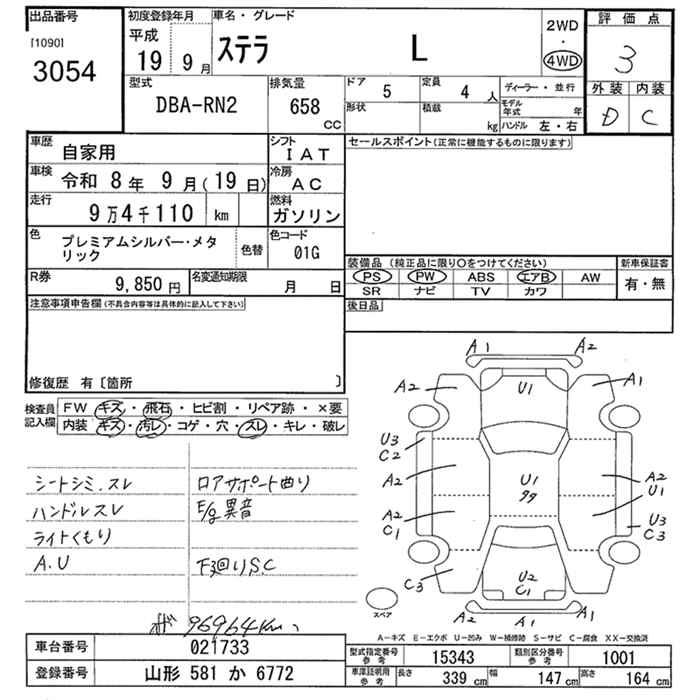 出品番号
[1090]
3054
初度登録年月
平成
19 9 月
車名・グレード
ステラ L
2WD
・
4WD
評価点
3
外装 内装
D C
型式
DBA-RN2
排気量
658
CC
ドア 5
形状
定員 4 人
積載 kg
ディーラー・並行
モデル年式 年
ハンドル 左・右
車歴 自家用
シフト IAT
車検 令和 8 年 9 月(19 日)
冷房 AC
走行 9 万 4 千 110 km
燃料 ガソリン
色 プレミアムシルバー・メタ
リック
色替
色コード 01G
R券 9,850 円
名変通知期限 月 日
セールスポイント(正常に機能するものに限ります)
装備品(純正品に限り〇をつけてください)
新車保証書
PS PW ABS エアB AW
SR ナビ TV カワ
有・無
後日品
注意事項申告欄(不具合内容等は具体的に記入して下さい)
修復歴 有〔箇所 〕
検査員
記入欄
FW キズ・飛石・ヒビ割・リペア跡・×要
内装 キズ・汚レ・コゲ・穴・スレ・キレ・破レ
シートシミ.スレ
ハンドルスレ
ライトくもり
A.U
ロアサポート曲り
E/g異音
下廻りS.C
96964km
A1 A2
A2 U1 A1
U3
C2
A2
U1
A2
U1
A2
C1
U3
C3
C3
U2
C1
A2 A1 A1
スペア
A−キズ E−エクボ U−凹み W−補修跡 S−サビ C−腐食 XX−交換済
車台番号 021733
登録番号 山形 581 か 6772
型式指定番号
参考
15343
類別区分番号
参考
1001
車庫証明用
参考
長さ 339 cm 幅 147 cm 高さ 164 cm